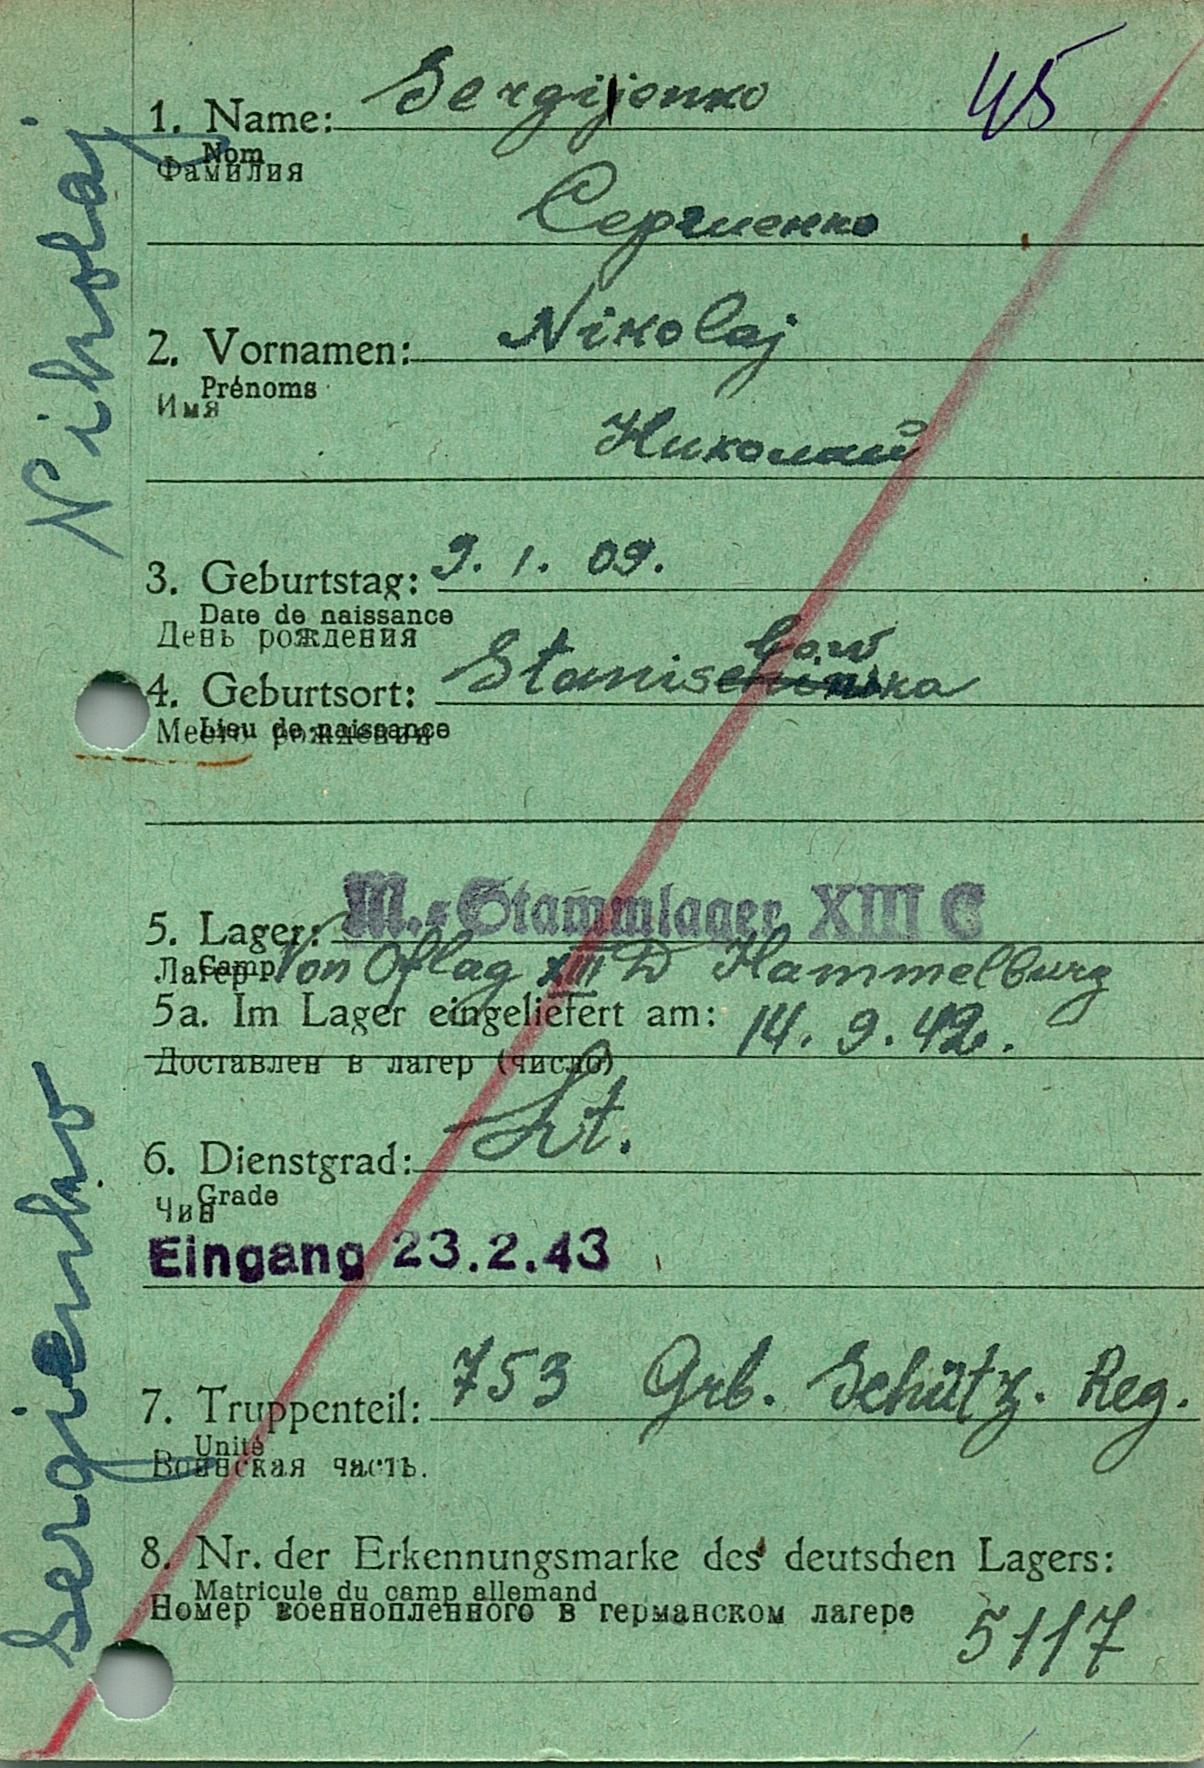 45
1. Name: Sergijenko
Nom
Фамилия
Сергиенко
2. Vornamen: Nikolaj
Prénoms
Имя
Николай
3. Geburtstag: 9. 1. 09.
Date de naissance
День рождения
4. Geburtsort: Stanis
Lieu de naissance
Место рождения
5. Lager: M.-Stammlager XIII C
Camp
Лагерь
Von Oflag XIII D Hammelburg
5a. Im Lager eingeliefert am: 14. 9. 42.
Доставлен в лагер (число)
6. Dienstgrad: Lt.
Grade
Чин
Eingang 23.2.43
7. Truppenteil: 753 Grb. Schütz. Reg.
Unité
Воинская часть.
8. Nr. der Erkennungsmarke des deutschen Lagers:
Matricule du camp allemand
Номер военнопленного в германском лагере
5117
Sergienko Nikolaj